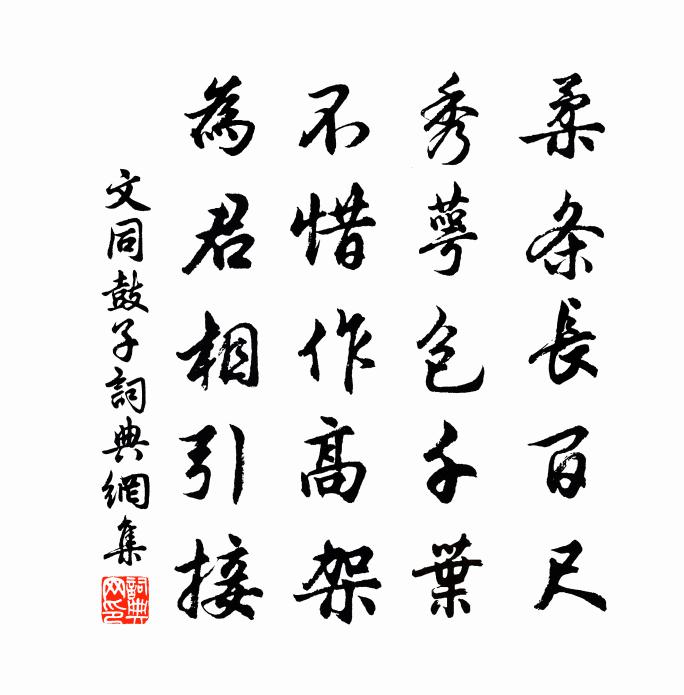 柔条長百尺
秀萼包千葉
不惜作高架
為君相引接
文同鼓子詞典網集
詞典網印